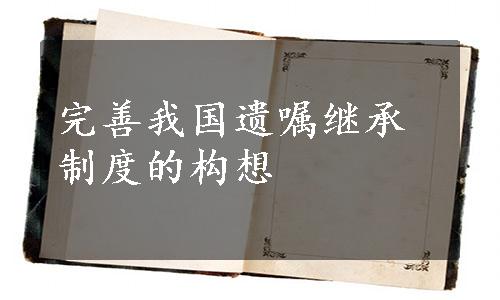 完善我国遗嘱继承
制度的构想